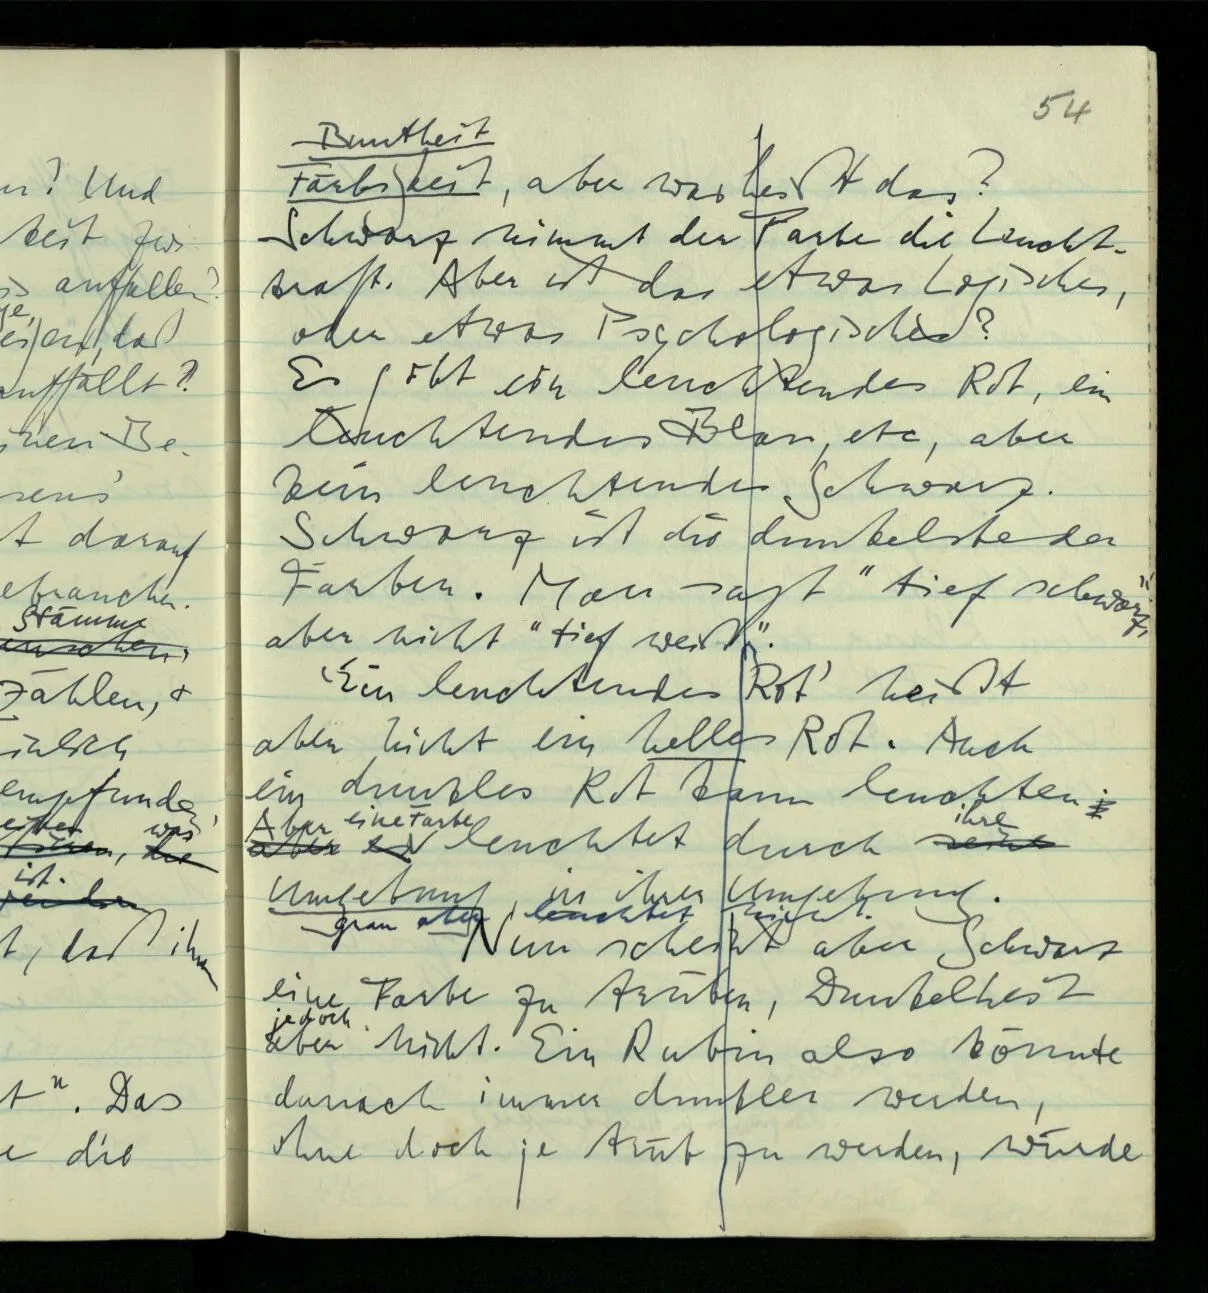 n? Und
keit zwi
auffallen?
eigen, daß
auffällt?
inen Be-
sens'
t darauf
ebrauchen.
Stämme
Zählen, &
empfunde
was
ist.
t, daß ihm
t". Das
e die
54
Buntheit
Färbigkeit, aber was heißt das?
Schwarz nimmt der Farbe die Leucht-
kraft. Aber ist das etwas Logisches,
oder etwas Psychologisches?
Es gibt ein leuchtendes Rot, ein
leuchtendes Blau, etc, aber
kein leuchtendes Schwarz.
Schwarz ist die dunkelste der
Farben. Man sagt "tief schwarz",
aber nicht "tief weiß".
'Ein leuchtendes Rot' heißt
aber nicht ein helles Rot. Auch
ein dunkles Rot kann leuchten:
Aber eine Farbe ihre
aber es leuchtet durch seine
Umgebung, in ihrer Umgebung.
grau aber leuchtet nicht.
Nun scheint aber Schwarz
eine Farbe zu trüben, Dunkelheit
jedoch
aber nicht. Ein Rubin also könnte
danach immer dunkler werden,
ohne doch je trüb zu werden, würde